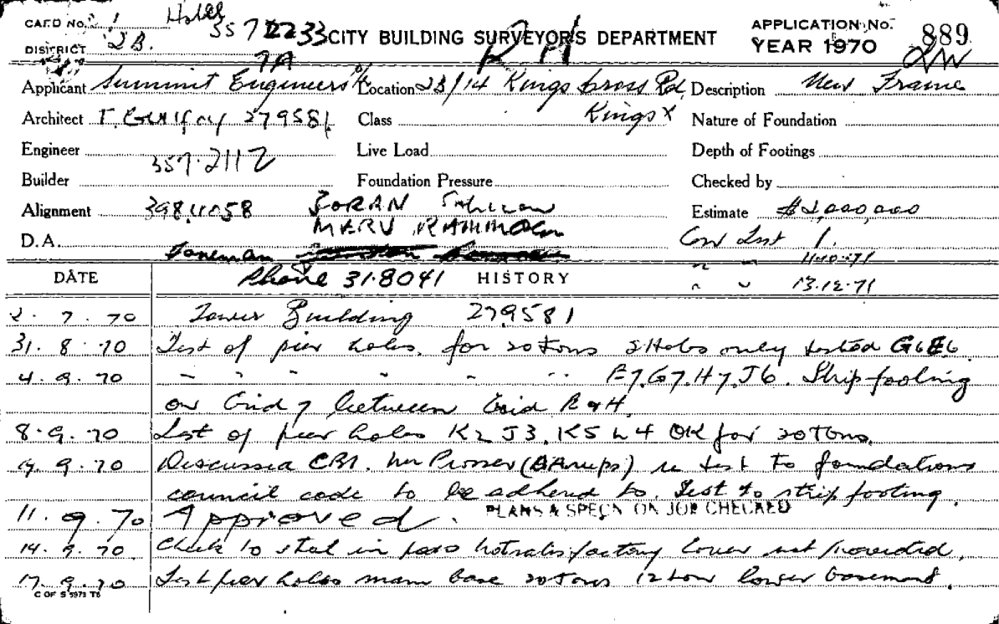 CARD No. 1 Hotel 357 2233 CITY BUILDING SURVEYORS DEPARTMENT APPLICATION No. 889
DISTRICT 2B. YEAR 1970
7A
Applicant Summit Engineers Location 23/14 Kings Cross Rd, Description New Frame
Architect 279581 Class Kings X Nature of Foundation
Engineer 357.2112 Live Load Depth of Footings
Builder Foundation Pressure Checked by
Alignment 398.4058 ZORAN Estimate $2,000,000
MERV
D.A. Con Test 1.
Foreman 4.10.71
DATE Phone 31.8041 HISTORY " " 13.12.71
2.7.70 Tower Building 279581
31.8.70 Test of pier holes. for 20 tons 2 Holes only tested G6E6.
4.9.70 " " " " " " F7.G7.H7.J6. Strip footing
on Grid 7 between Grid & H.
8.9.70 Test of pier holes K2 J3. K5 L4 OK for 20 Tons.
9.9.70 Discussed CBI. Mr Prosser re test to foundations
council code to be adhered to. Test to strip footing.
11.9.70 Approved. PLANS & SPECN ON JOB CHECKED
14.9.70 Check to steel in lower not
17.9.70 Test pier holes main base 20 tons 12 ton lower basement.
C OF S 5973 T6